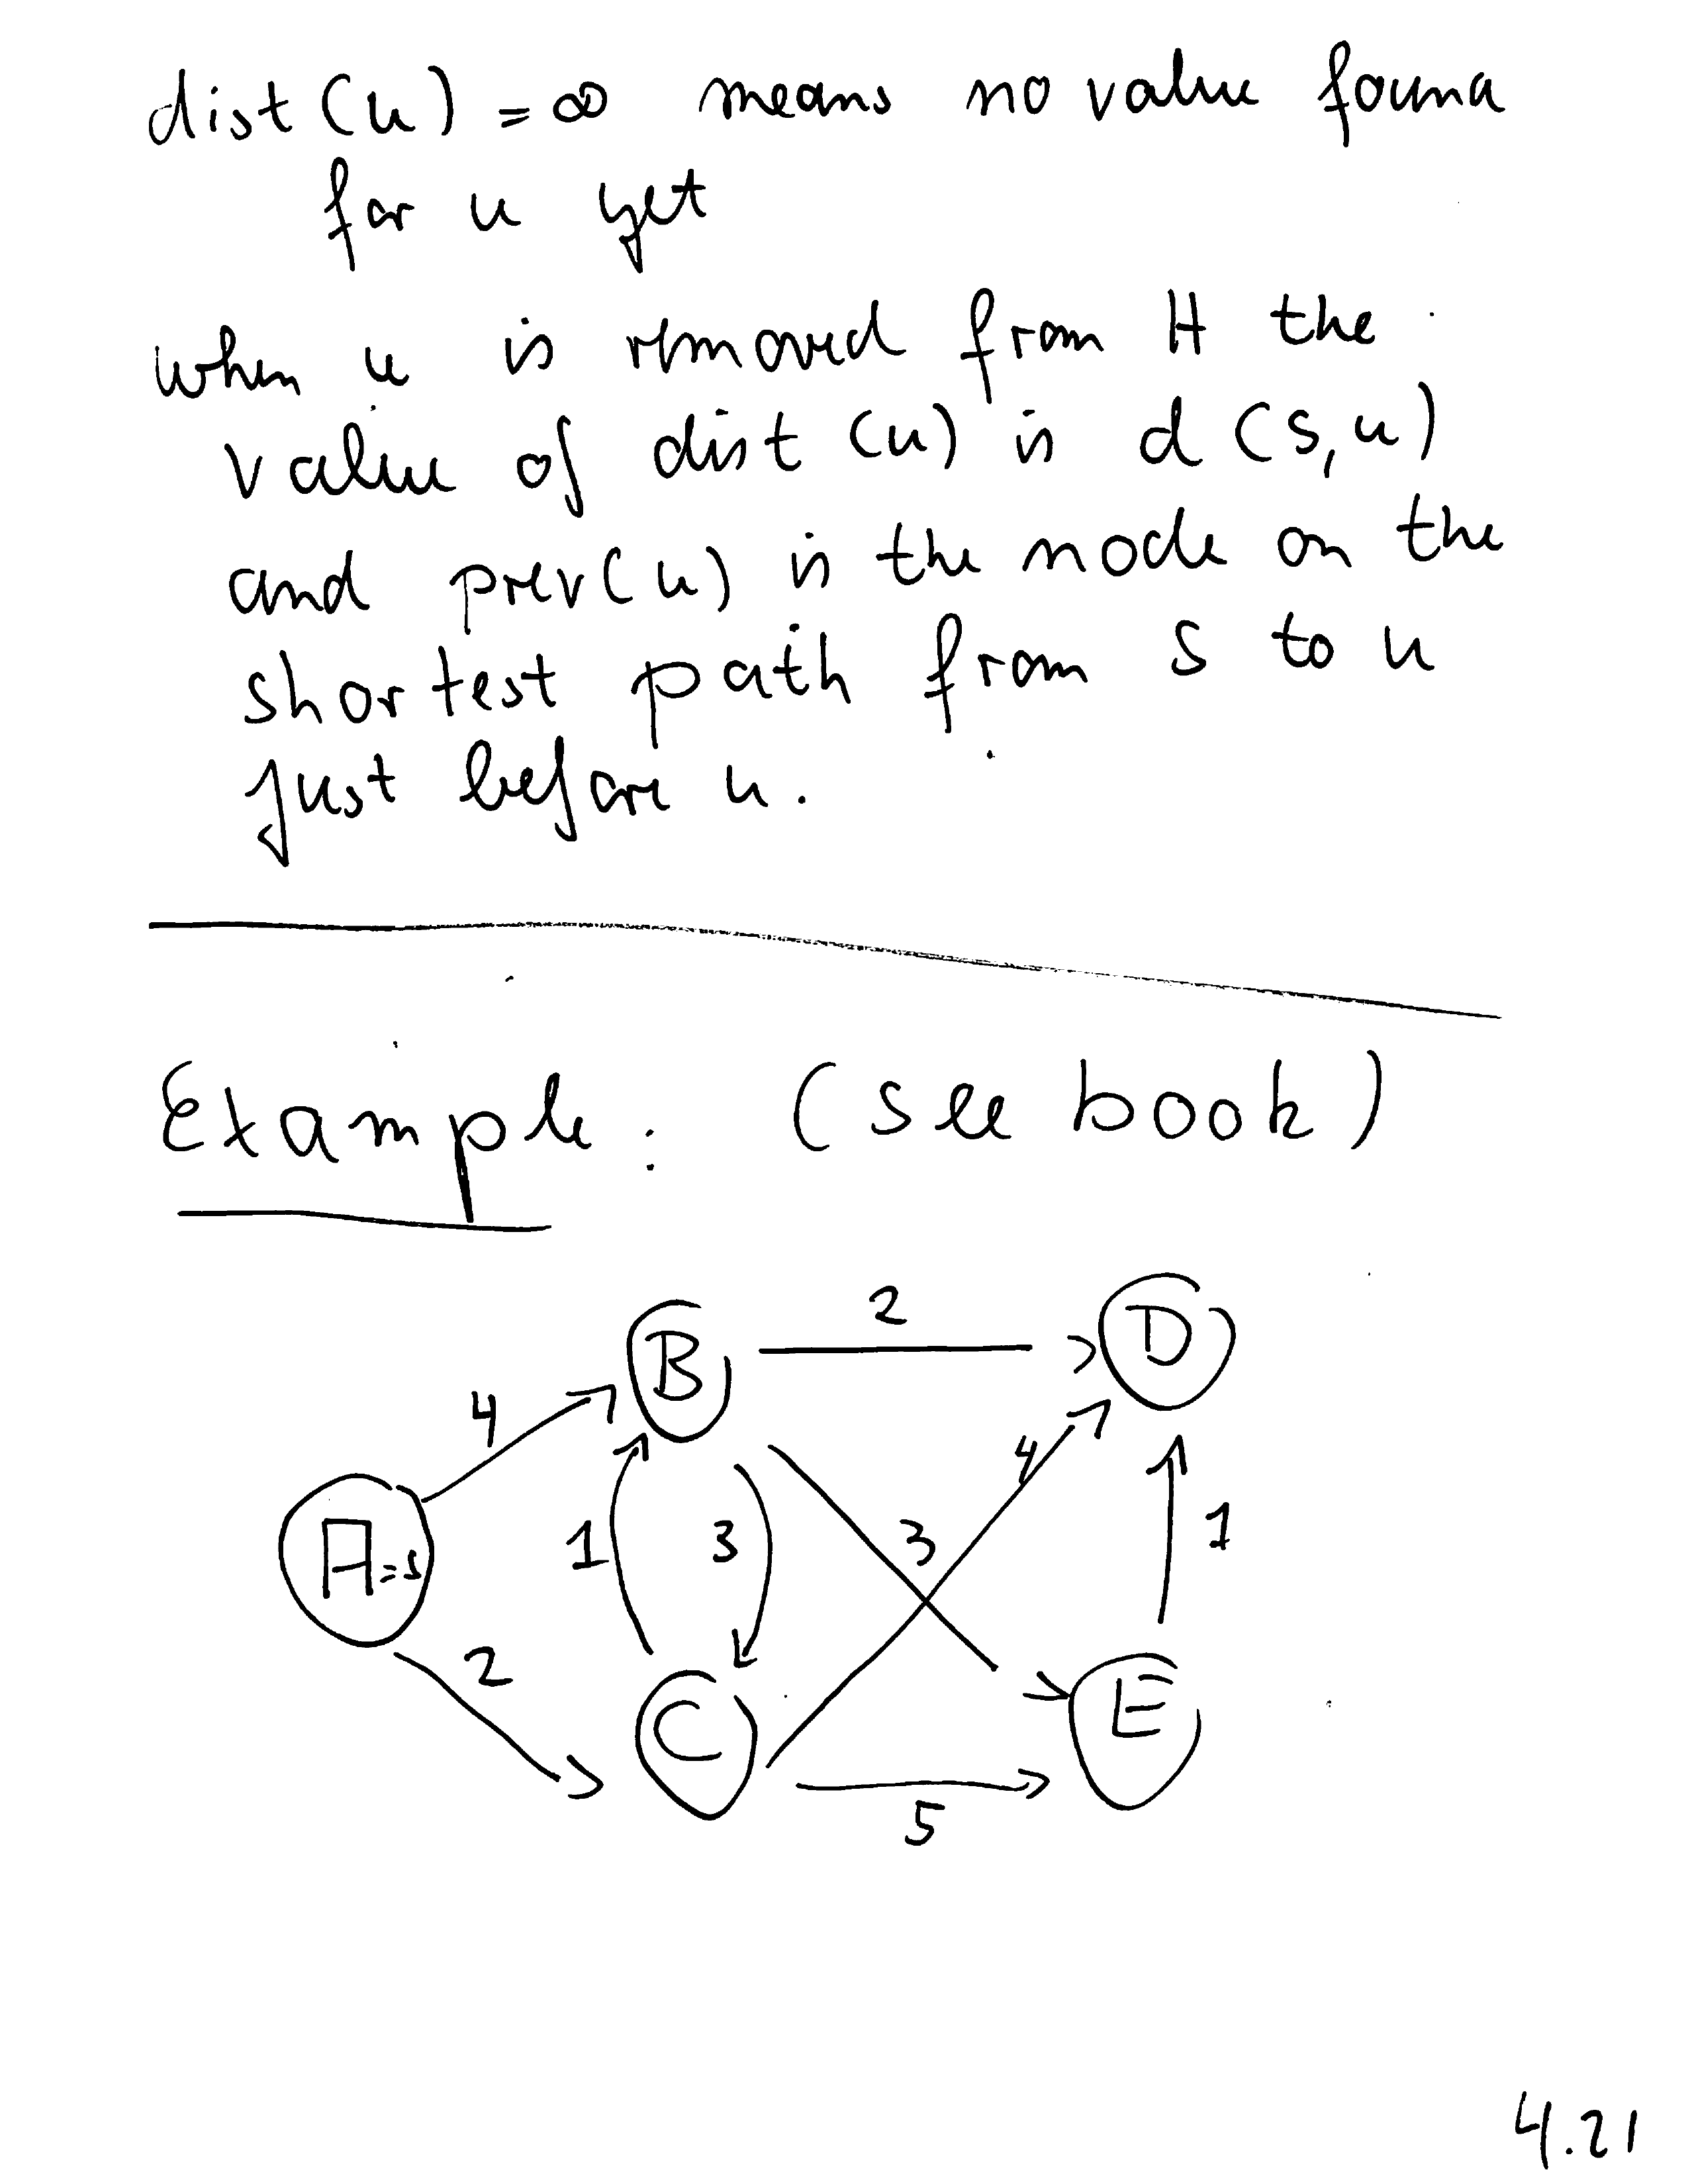 dist (u) = ∞ means no value found
for u yet
when u is removed from H the
value of dist (u) is d (s,u)
and prev(u) is the node on the
shortest path from s to u
just before u.
Example: (see book)
2
B
D
4
4
A=s
1
3
3
1
2
C
E
5
4.21